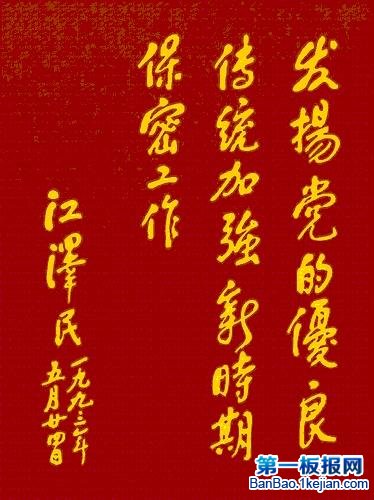 发揚党的優良
传統加強新時期
保密工作
江澤民
一九九三年
五月廿四日
第一板报网
BanBao.1kejian.com